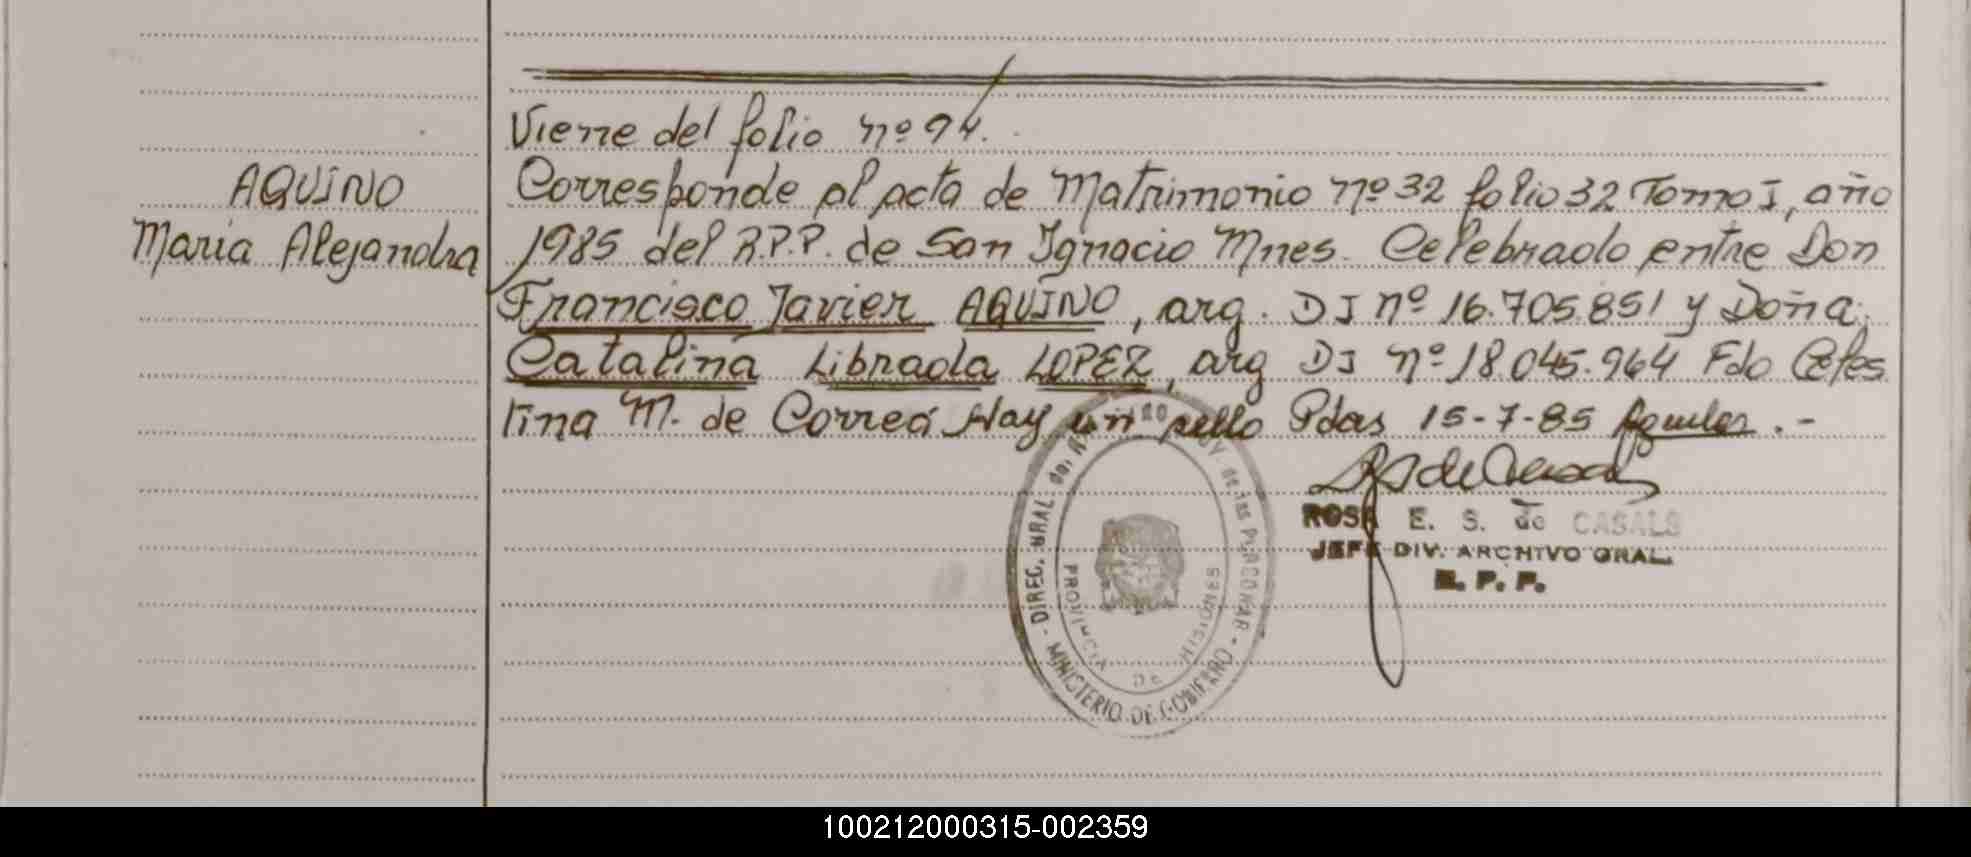 Viene del folio nº 94.
AQUINO
Maria Alejandra
Corresponde al acta de Matrimonio nº 32 folio 32 Tomo I, año
1985 del R.P.P. de San Ignacio Mnes. Celebrado entre Don
Francisco Javier AQUINO, arg. DI nº 16.705.851 y Doña
Catalina Librada LOPEZ, arg DI nº 18.045.964 Fdo Celes
tina M. de Correa Hay un sello Pdas 15-7-85 Aguilar.-
ROSA E. S. de CASALS
JEFE DIV. ARCHIVO GRAL.
R. P. P.
DIREC. GRAL. del de las PERSONAS - MINISTERIO DE GOBIERNO -
PROVINCIA DE MISIONES
100212000315-002359